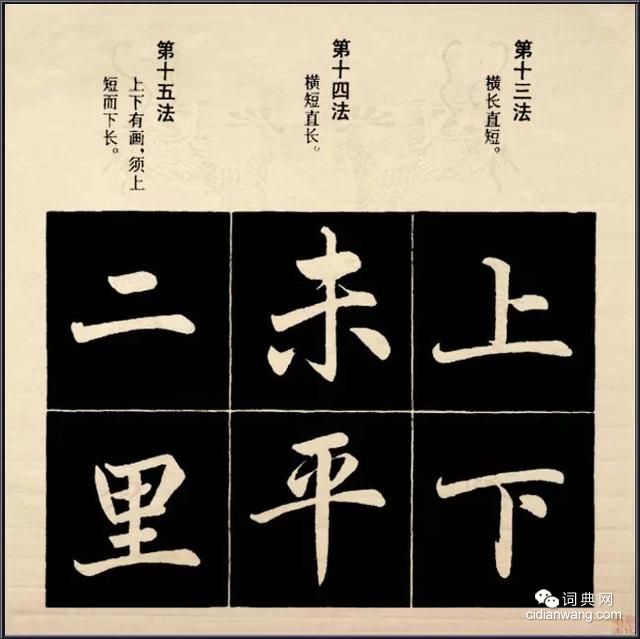 第十三法
横长直短。
上
下
第十四法
横短直长。
未
平
第十五法
上下有画，须上
短而下长。
二
里
词典网
cidianwang.com